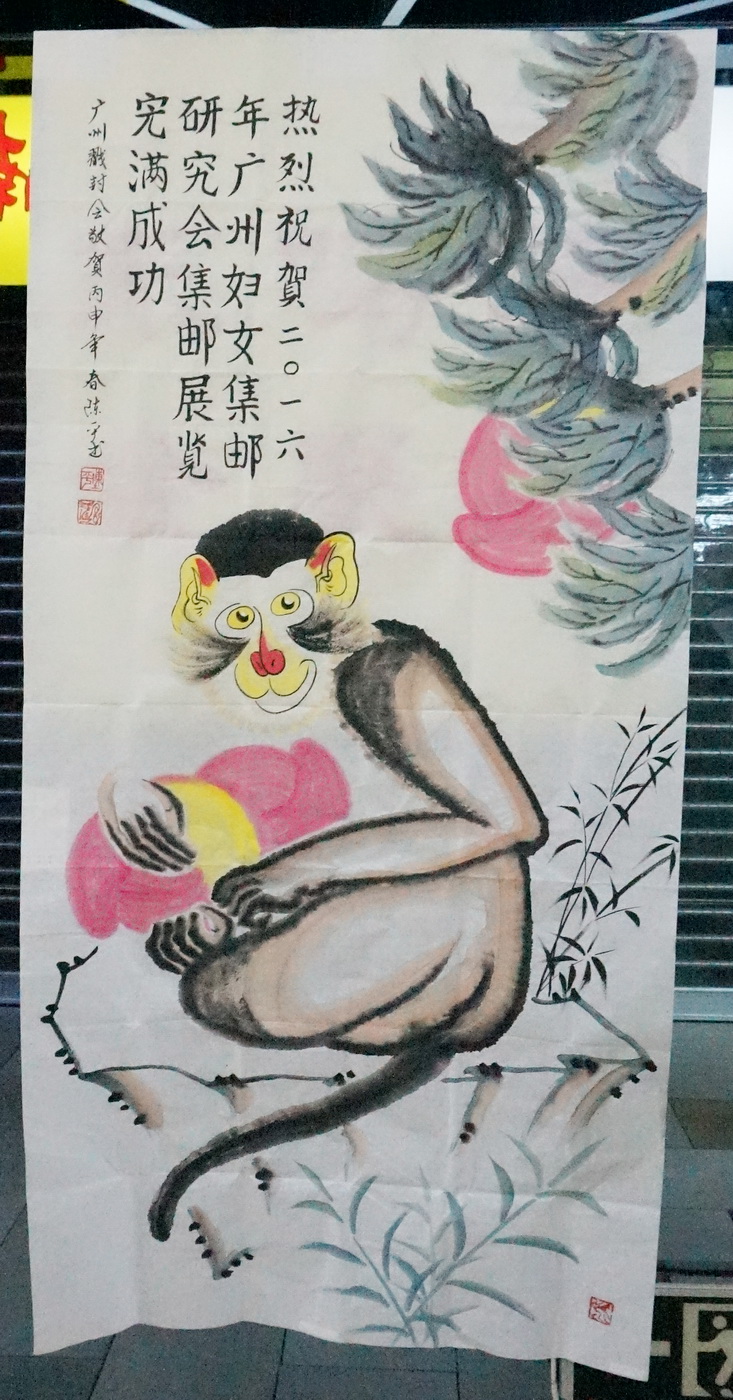 热烈祝賀二〇一六
年广州妇女集邮
研究会集邮展览
完满成功
广州戳封会敬賀丙申年春陈平